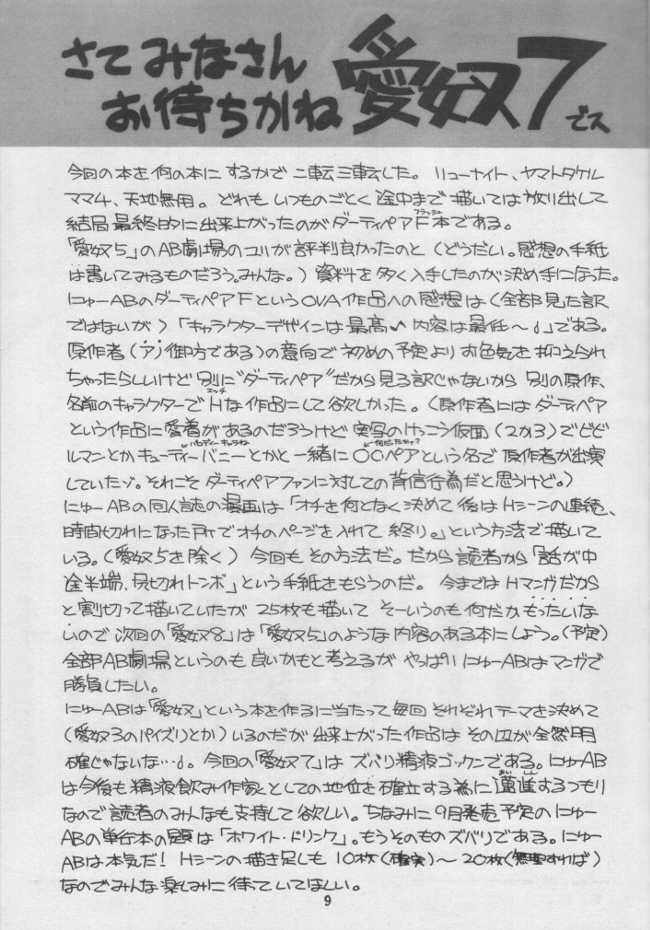 さて みなさん
お待ちかね 愛奴7でス
今回の本を何の本に するかで 二転三転した。 リューナイト、ヤマトタケル
ママ4、天地無用。 どれも いつものごとく 途中まで 描いては 放り出して
結局 最終的に出来上がったのが ダーティペアF本である。
フラッシュ
「愛奴5」のAB劇場のユリが評判良かったのと (どうだい。感想の手紙
は書いてみるものだろう。みんな。) 資料を 多く入手したのが決め手になった。
にゅーABのダーティペアFというOVA作品への感想は (全部見た訳
ではないが) 「キャラクターデザインは最高♪ 内容は最低〜♩」である。
原作者 (ア)御方である)の意向で 初めの予定より お色気を 抑えられ
ちゃったらしいけど 別に"ダーティペア"だから見る訳じゃないから 別の原作、
名前のキャラクターで Hな作品にして欲しかった。 (原作者には ダーティペア
エッチ
という作品に 愛着が あるのだろうけど 実写のけっこう仮面 (2か3)で ビビ
ルマンとか キューティーバニーとかと 一緒に 〇〇ペアという名で 原作者が出演
していたゾ。それこそ ダーティペアファンに対しての 背信行為だと思うけど。)
にゅーABの同人誌の漫画は 「オチを何となく決めて 後はHシーンの連続、
時間切れになった所でオチのページを入れて 終り。」という方法で 描いて
いる。(愛奴5を除く) 今回も その方法だ。だから 読者から 「話が中
途半端、尻切れトンボ」という手紙をもらうのだ。 今までは Hマンガだから
と割切って描いていたが 25枚も描いて そーいうのも 何だか もったいな
いので 次回の「愛奴8」は「愛奴5」のような 内容のある本にしよう。(予定)
全部AB劇場というのも 良いかもと考えるが やっぱり にゅーABはマンガで
勝負したい。
にゅーABは「愛奴」という本を作るに当たって毎回 それぞれテーマを決めて
(愛奴3のパイズリとか) いるのだが 出来上がった作品は その辺が 全然明
確じゃないな…♩。 今回の「愛奴7」は ズバリ精液ゴックンである。にゅーAB
は今後も 精液飲み作家としての地位を確立する為に 邁進するつもり
まいしん
なので 読者のみんなも支持して欲しい。ちなみに 9月発売予定の にゅー
ABの単行本の題は 「ホワイト・ドリンク」。もうそのものズバリである。にゅー
ABは本気だ! Hシーンの描き足しも 10枚(確実)〜 20枚(無理すれば)
なのでみんな楽しみに待っていてほしい。
9